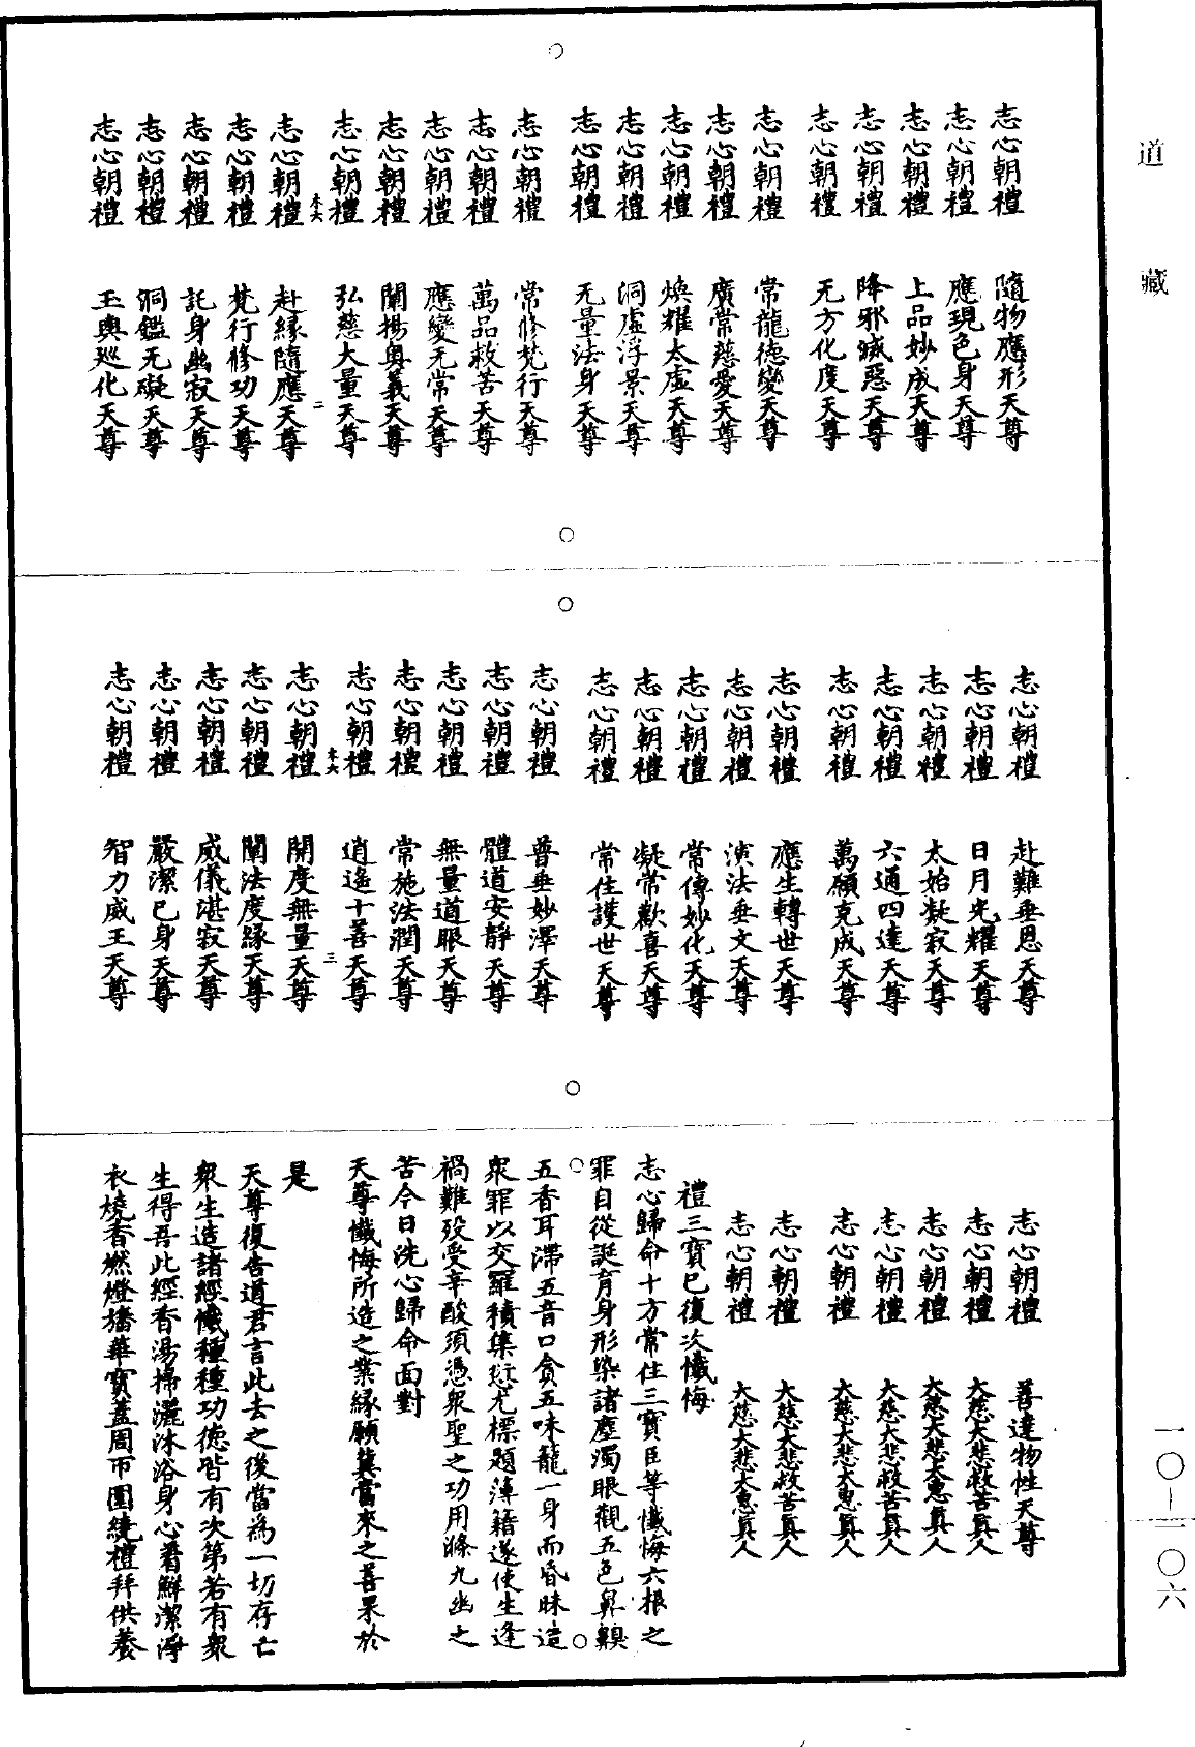 道藏
志心朝禮 隨物應形天尊
志心朝禮 應現色身天尊
志心朝禮 上品妙成天尊
志心朝禮 降邪滅惡天尊
志心朝禮 无方化度天尊
志心朝禮 常龍德變天尊
志心朝禮 廣常慈愛天尊
志心朝禮 煥耀太虛天尊
志心朝禮 洞虛浮景天尊
志心朝禮 无量法身天尊
志心朝禮 常修梵行天尊
志心朝禮 萬品救苦天尊
志心朝禮 應變无常天尊
志心朝禮 闡揚奧義天尊
志心朝禮 弘慈大量天尊
木六 二
志心朝禮 赴緣隨應天尊
志心朝禮 梵行修功天尊
志心朝禮 託身幽寂天尊
志心朝禮 洞鑑无礙天尊
志心朝禮 玉輿巡化天尊
志心朝禮 赴難垂恩天尊
志心朝禮 日月光耀天尊
志心朝禮 太始凝寂天尊
志心朝禮 六通四達天尊
志心朝禮 萬願克成天尊
志心朝禮 應生轉世天尊
志心朝禮 演法垂文天尊
志心朝禮 常傳妙化天尊
志心朝禮 凝常歡喜天尊
志心朝禮 常住護世天尊
志心朝禮 普垂妙澤天尊
志心朝禮 體道安靜天尊
志心朝禮 無量道眼天尊
志心朝禮 常施法潤天尊
志心朝禮 逍遙十善天尊
木六 三
志心朝禮 開度無量天尊
志心朝禮 闡法度緣天尊
志心朝禮 威儀湛寂天尊
志心朝禮 嚴潔已身天尊
志心朝禮 智力威王天尊
志心朝禮 善達物性天尊
志心朝禮 大慈大悲救苦真人
志心朝禮 大慈大悲大惠真人
志心朝禮 大慈大悲救苦真人
志心朝禮 大慈大悲大惠真人
志心朝禮 大慈大悲救苦真人
志心朝禮 大慈大悲大惠真人
禮三寶已復次懺悔
志心歸命十方常住三寶臣等懺悔六根之
罪自從誕育身形染諸塵濁眼觀五色鼻齅
五香耳滯五音口貪五味籠一身而昏昧造
眾罪以交羅積集愆尤標題簿籍遂使生逢
禍難歿受辛酸須憑眾聖之功用滌九幽之
苦今日洗心歸命面對
天尊懺悔所造之業緣願冀當來之善果於
是
天尊復告道君言此去之後當為一切存亡
眾生造諸經懺種種功德皆有次第若有眾
生得吾此經香湯掃灑沐浴身心着鮮潔淨
衣燒香燃燈旛華寶蓋周帀圍繞禮拜供養
一〇—一〇六